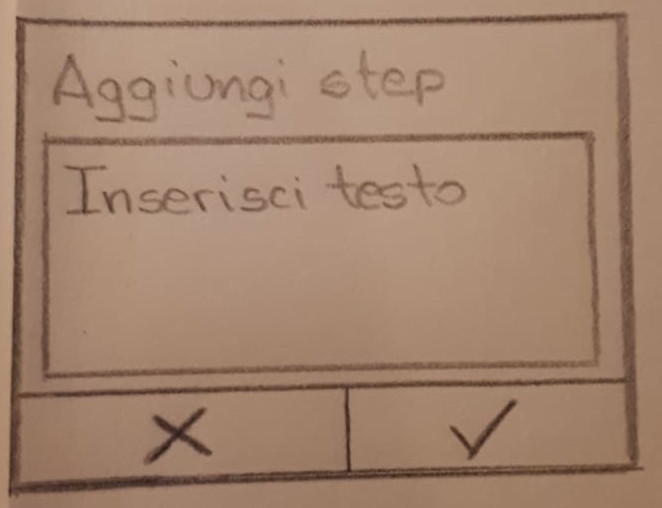 Aggiungi step
Inserisci testo